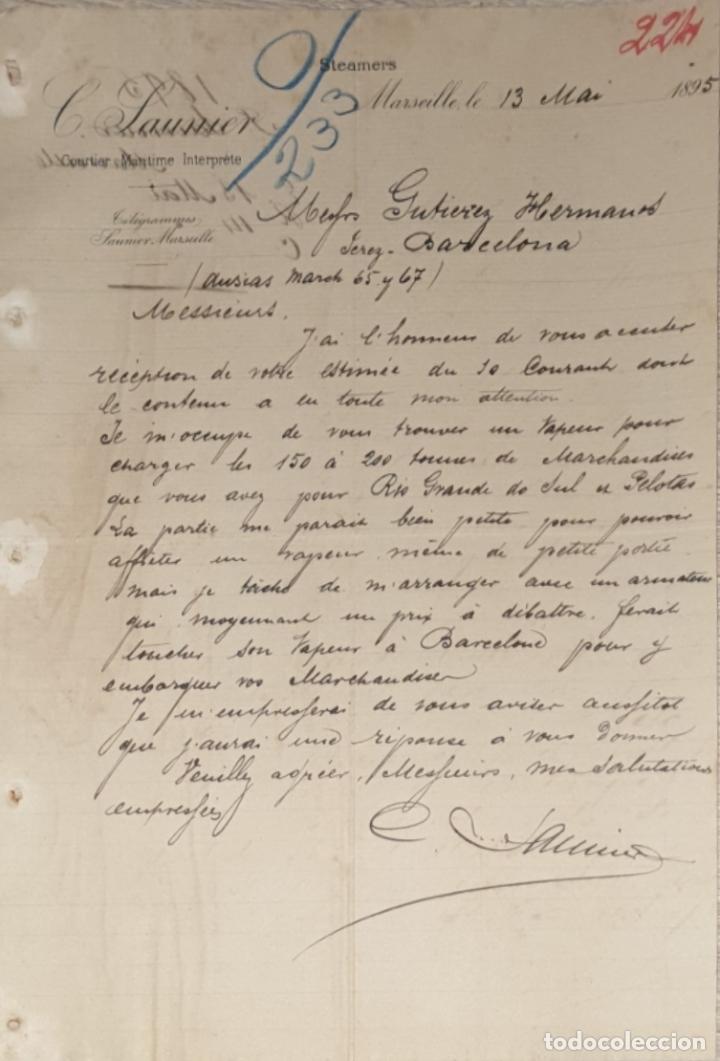 224
Steamers
233
Marseille, le 13 Mai 1895
C. Saunier
Courtier Maritime Interprète
Télégrammes
Saunier-Marseille
Messrs Gutierez Hermanos
Jerez - Barcelona
(Ausias March 65 y 67)
Messieurs.
J'ai l'honneur de vous accuser
réception de votre estimée du 10 Courant dont
le contenu a eu toute mon attention.
Je m'occupe de vous trouver un Vapeur pour
charger les 150 à 200 tonnes de Marchandises
que vous avez pour Rio Grande do Sul et Pelotas
La partie me parait bien petite pour pouvoir
affréter un vapeur même de petite portée
mais je tâche de m'arranger avec un armateur
qui moyennant un prix à débattre, ferait
toucher son Vapeur à Barcelone pour y
embarquer vos Marchandises
Je m'empresserai de vous aviser aussitot
que j'aurai une réponse à vous donner
Veuillez agréer, Messieurs, mes Salutations
empressées
C. Saunier
todocoleccion.net